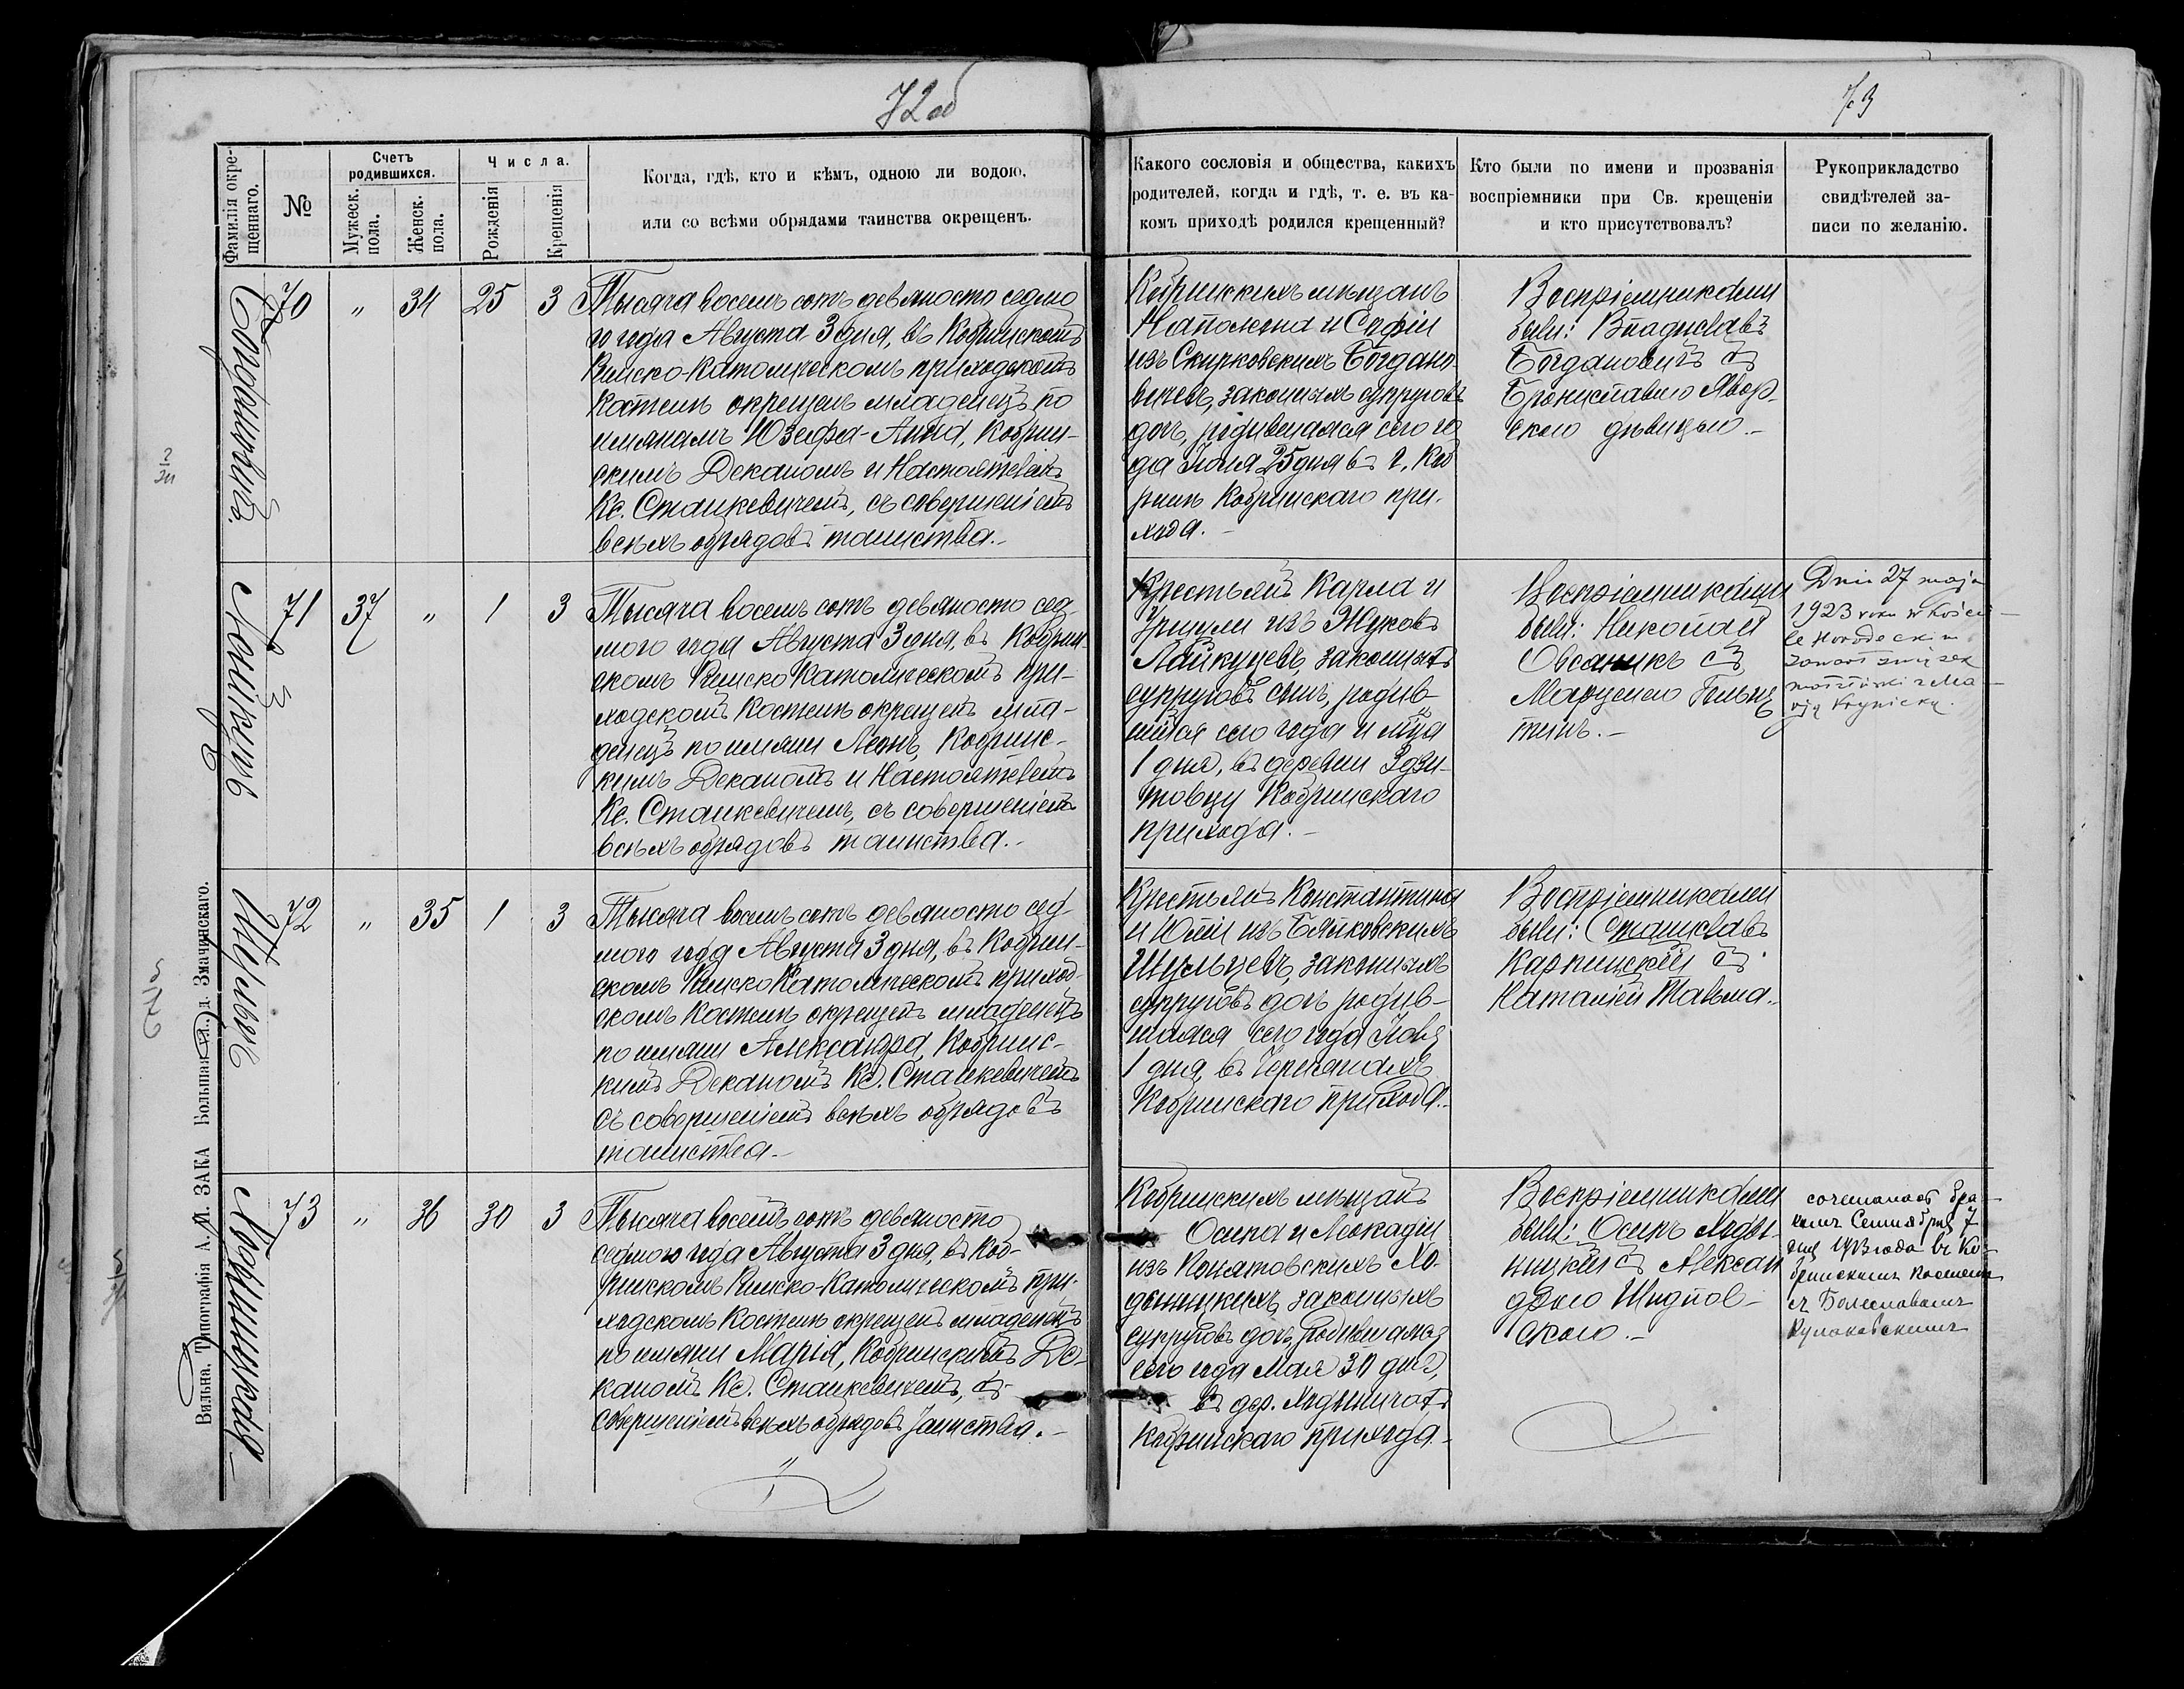 72об
73
Фамилія окре-
щеннаго.
№
Счетъ
родившихся.
Мужеск.
пола.
Женск.
пола.
Числа.
Рожденія
Крещенія
Когда, гдѣ, кто и кѣмъ, одною ли водою,
или со всѣми обрядами таинства окрещенъ.
Какого сословія и общества, какихъ
родителей, когда и гдѣ, т. е. въ ка-
комъ приходѣ родился крещенный?
Кто были по имени и прозванія
воспріемники при Св. крещеніи
и кто присутствовалъ?
Рукоприкладство
свидѣтелей за-
писи по желанію.
Богдановичъ.
70 " 34 25 3
Тысяча восемьсотъ девяносто седмо
го года Августа 3 дня, въ Кобринскомъ
Римско-Католическомъ приходскомъ
Костелѣ окрещенъ младенецъ по
именамъ Юзефа-Анна, Кобрин-
скимъ Деканомъ и Настоятелемъ
Кс. Станкевичемъ, съ совершеніемъ
всѣхъ обрядовъ таинства.-
Кобринскихъ мѣщанъ
Наполеона и Софіи
изъ Скирковскихъ Богдано-
вичевъ, законныхъ супруговъ
дочь, родившаяся сего го
да Іюля 25 дня въ г. Коб
ринѣ Кобринскаго при-
хода.-
Воспріемниками
были: Владиславъ
Богдановичъ съ
Брониславою Явор-
скою дѣвицею.-
Лайкуцъ
71 37 " 1 3
Тысяча восемьсотъ девяносто сед-
мого года Августа 3 дня, въ Кобрин-
скомъ Римско Католическомъ при-
ходскомъ Костелѣ окрещенъ мла-
денецъ по имени Леонъ, Кобринс-
кимъ Деканомъ и Настоятелемъ
Кс. Станкевичемъ, съ совершеніемъ
всѣхъ обрядовъ таинства.-
Крестьянъ Карла и
Уршули изъ Жуковъ
Лайкуцевъ, законныхъ
супруговъ сынъ, родив-
шійся сего года и м-ца
1 дня, въ деревни Здзи-
товцу Кобринскаго
прихода.-
Воспріемниками
были: Николай
Овсаникъ съ
Марцелею
Dnia 27 maja
1923 roku w Koście-
le Horodeckim
zawarł związek
małżeński z Ma-
rją Krynicką.
Шульцъ
72 " 35 1 3
Тысяча восемьсотъ девяносто сед-
мого года Августа 3 дня, въ Кобрин-
скомъ Римско Католическомъ приход-
скомъ Костелѣ окрещенъ младенецъ
по имени Александра, Кобринс-
кимъ Деканомъ Кс. Станкевичемъ
съ совершеніемъ всѣхъ обрядовъ
таинства.-
Крестьянъ Константина
и Юліи изъ Бялковскихъ
Шульцевъ, законныхъ
супруговъ дочь родив-
шаяся сего года
1 дня, въ
Кобринскаго прихода.-
Воспріемниками
были: Станиславъ
Карпинскій съ
Каталіей Тальма.
Ходыницкая
73 " 36 30 3
Тысяча восемьсотъ девяносто
седмого года Августа 3 дня, въ Коб-
ринскомъ Римско-Католическомъ при-
ходскомъ Костелѣ окрещенъ младенецъ
по имени Марія, Кобринскимъ Де-
каномъ Кс. Станкевичемъ, съ
совершеніемъ всѣхъ обрядовъ таинства.-
Кобринскихъ мѣщанъ
Осипа и Леокадіи
изъ Понятовскихъ Хо-
дыницкихъ, законныхъ
супруговъ дочь, родившаяся
сего года Мая 30 дня,
въ дер. Ходыничахъ
Кобринскаго прихода.-
Воспріемниками
были: Осипъ Ходы-
ницкій съ Алексан
дрою
сочеталась бра-
комъ Сентября 7
дня 1913 года въ Ко-
бринскомъ Костелѣ
съ Болеславомъ
Кулаковскимъ
Вильна. Типографія А. М. ЗАКА Большая ул. д. Значинскаго.